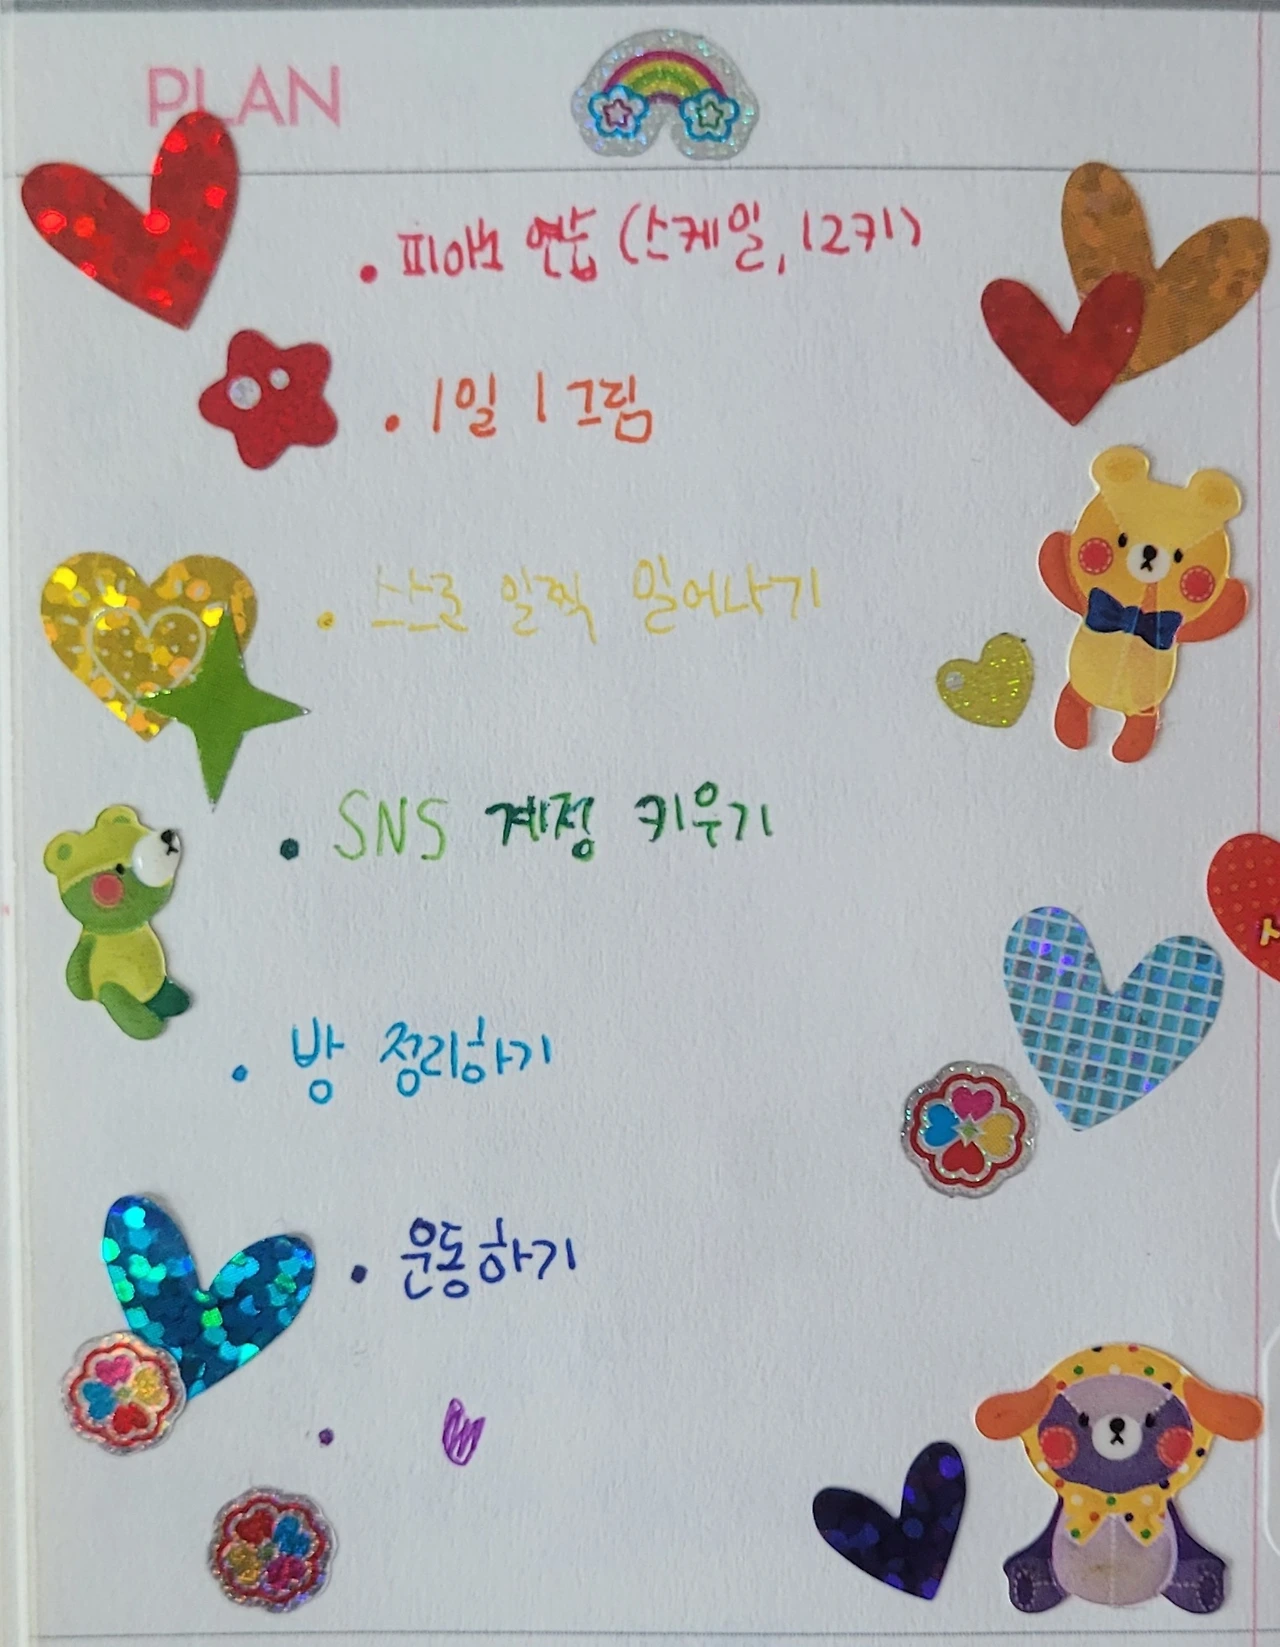 PLAN
• 피아노 연습 (스케일, 12키)
• 1일 1그림
• 스스로 일찍 일어나기
• SNS 계정 키우기
• 방 정리하기
• 운동하기